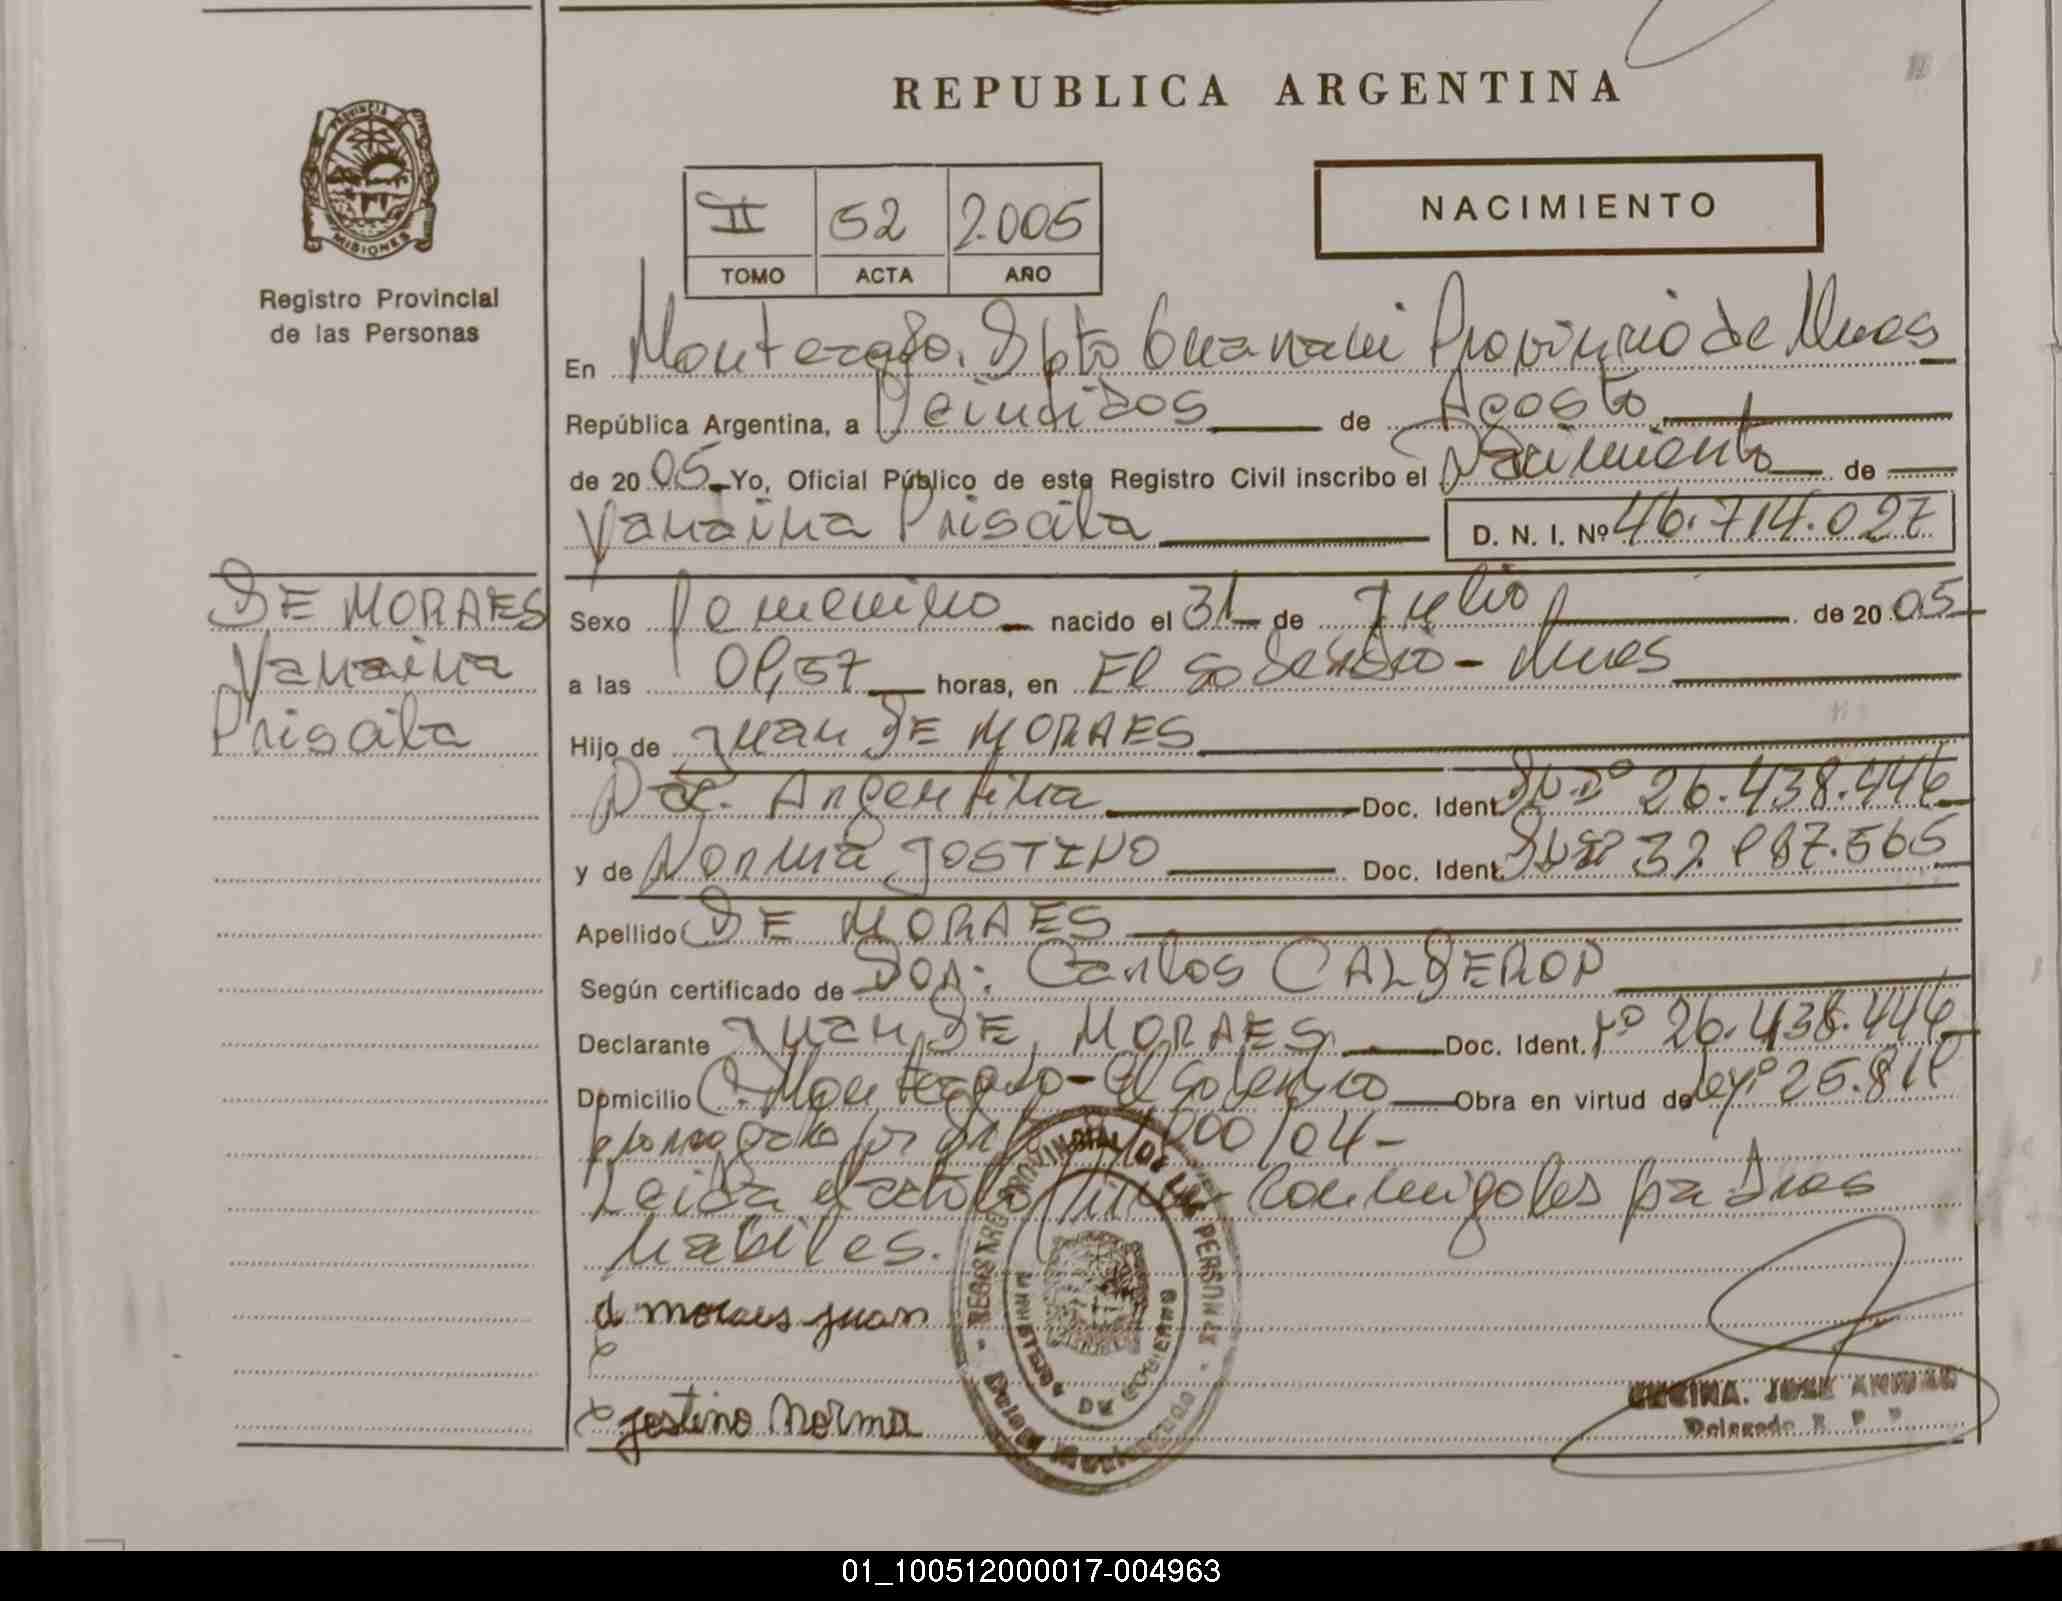 REPUBLICA ARGENTINA
PROVINCIA
MISIONES
Registro Provincial
de las Personas
II 52 2.005
TOMO ACTA AÑO
NACIMIENTO
En Dpto Guarani Provincia de Mnes
República Argentina, a Veintidos de Agosto
de 2005 Yo, Oficial Público de este Registro Civil inscribo el Nacimiento de
Yanaina Priscila D. N. I. Nº 46.714.027
DE MORAES
Yanaina
Priscila
Sexo Femenino nacido el 31 de Julio de 2005
a las horas, en El Soberbio - Mnes
Hijo de Juan DE MORAES
Nac. Argentina Doc. Ident. DNI Nº 26.438.446
y de Norma JOSTINO Doc. Ident.
Apellido DE MORAES
Según certificado de Dor: Carlos CALDERON
Declarante Juan DE MORAES Doc. Ident. Nº 26.438.446
Domicilio El Soberbio Obra en virtud de ley nº 25.819
por 1000/04-
Leida el acta firman conmigo los padres
habiles.
d moraes juan
jostino Norma
REGISTRO PROVINCIAL DE LAS PERSONAS
MINISTERIO DE GOBIERNO
JOSE
Delegado R. P. P.
01_100512000017-004963